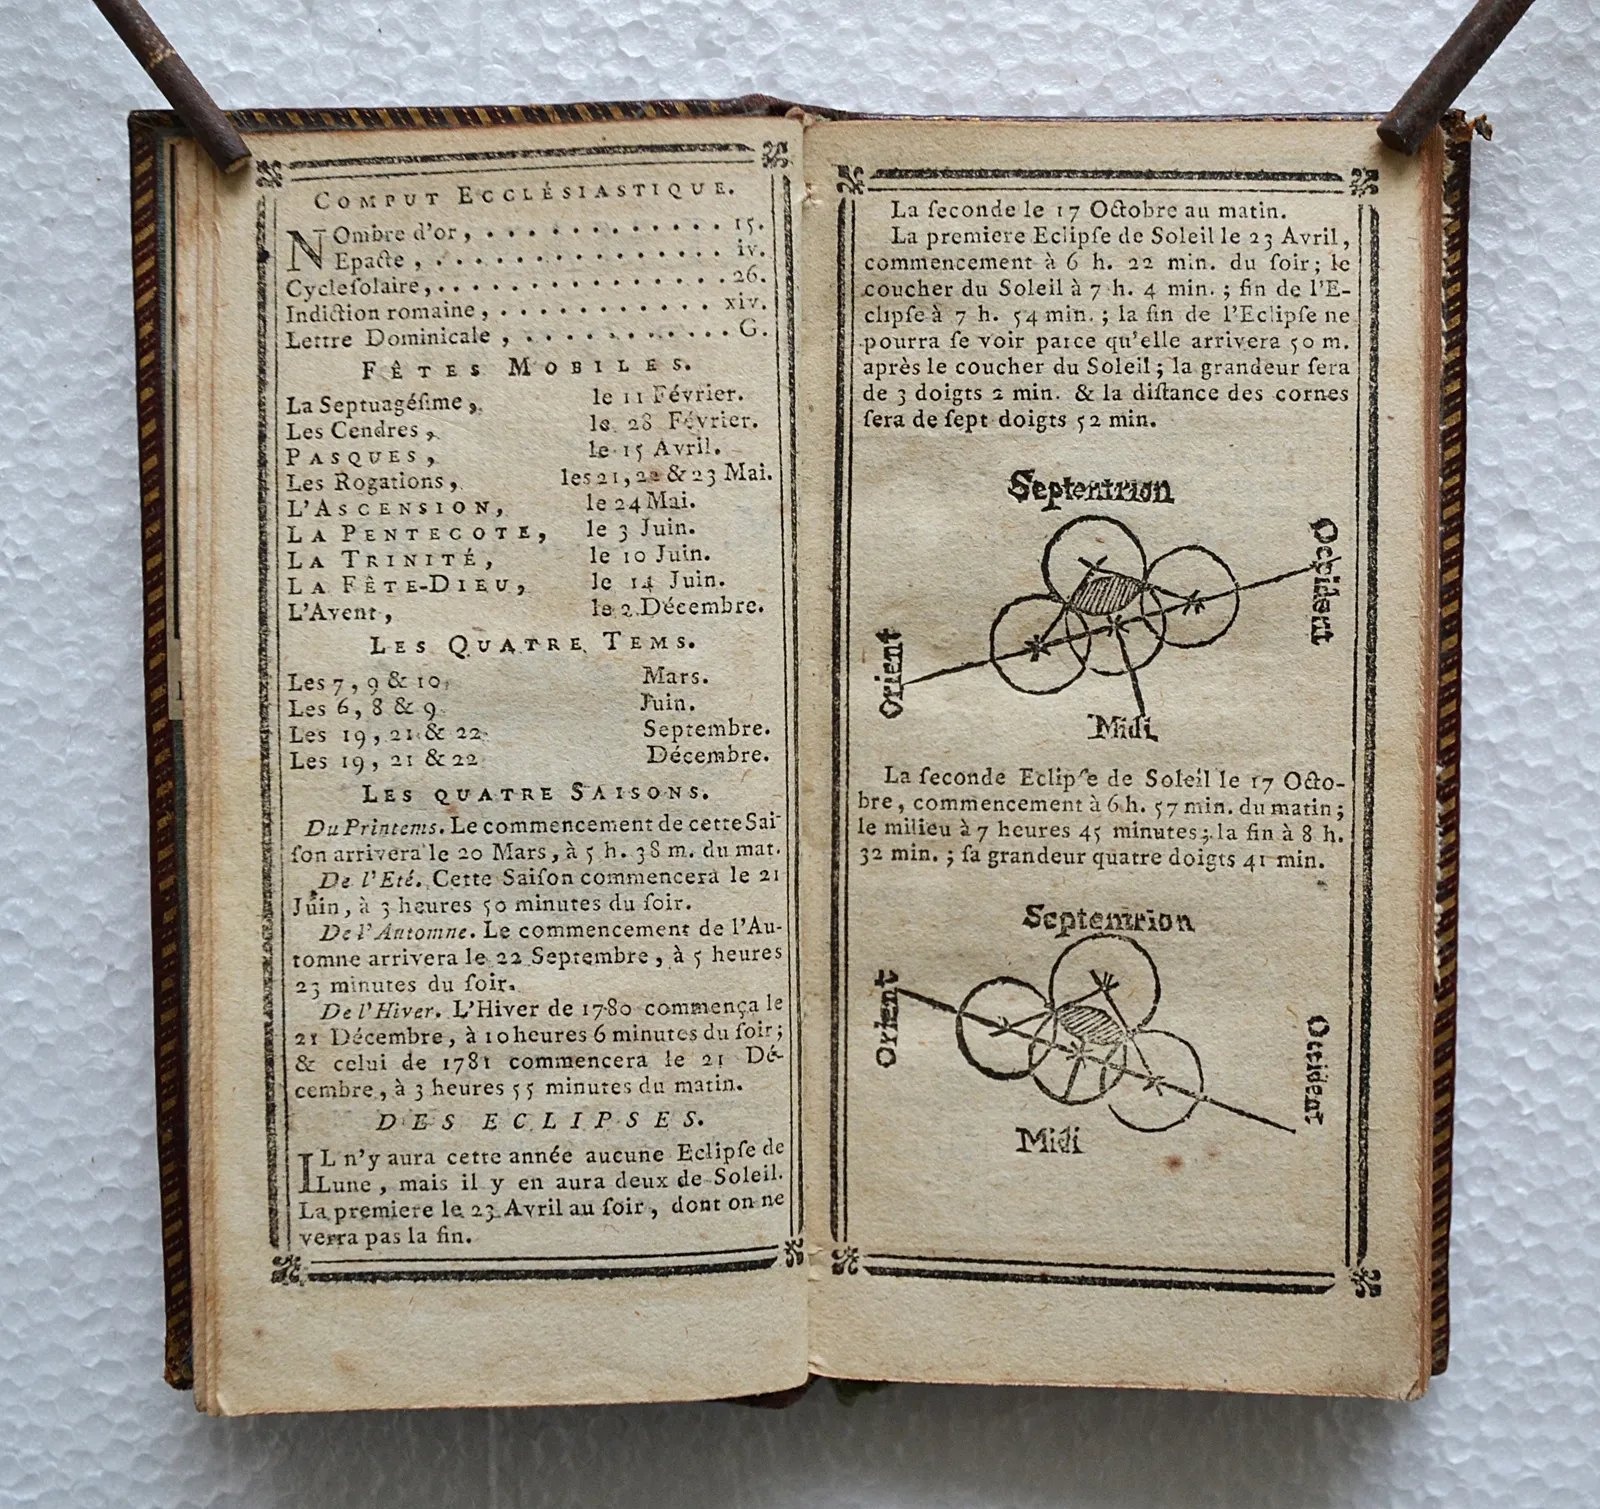 COMPUT ECCLÉSIASTIQUE.
NOmbre d'or, . . . . . . . . . . . . 15.
Epacte, . . . . . . . . . . . . . . . iv.
Cycle solaire, . . . . . . . . . . . . . . 26.
Indiction romaine, . . . . . . . . . . . xiv.
Lettre Dominicale, . . . . . . . . . . . G.
FÊTES MOBILES.
La Septuagéſime, le 11 Février.
Les Cendres, le 28 Février.
PASQUES, le 15 Avril.
Les Rogations, les 21, 22 & 23 Mai.
L'ASCENSION, le 24 Mai.
LA PENTECOTE, le 3 Juin.
LA TRINITÉ, le 10 Juin.
LA FÊTE-DIEU, le 14 Juin.
L'Avent, le 2 Décembre.
LES QUATRE TEMS.
Les 7, 9 & 10 Mars.
Les 6, 8 & 9 Juin.
Les 19, 21 & 22 Septembre.
Les 19, 21 & 22 Décembre.
LES QUATRE SAISONS.
Du Printems. Le commencement de cette Sai-
ſon arrivera le 20 Mars, à 5 h. 38 m. du mat.
De l'Eté. Cette Saiſon commencera le 21
Juin, à 3 heures 50 minutes du ſoir.
De l'Automne. Le commencement de l'Au-
tomne arrivera le 22 Septembre, à 5 heures
23 minutes du ſoir.
De l'Hiver. L'Hiver de 1780 commença le
21 Décembre, à 10 heures 6 minutes du ſoir;
& celui de 1781 commencera le 21 Dé-
cembre, à 3 heures 55 minutes du matin.
DES ECLIPSES.
IL n'y aura cette année aucune Eclipſe de
Lune, mais il y en aura deux de Soleil.
La premiere le 23 Avril au ſoir, dont on ne
verra pas la fin.
La ſeconde le 17 Octobre au matin.
La premiere Eclipſe de Soleil le 23 Avril,
commencement à 6 h. 22 min. du ſoir; le
coucher du Soleil à 7 h. 4 min.; fin de l'E-
clipſe à 7 h. 54 min.; la fin de l'Eclipſe ne
pourra ſe voir parce qu'elle arrivera 50 m.
après le coucher du Soleil; la grandeur ſera
de 3 doigts 2 min. & la diſtance des cornes
ſera de ſept doigts 52 min.
Septentrion
Occident
Orient
Midi
La ſeconde Eclipſe de Soleil le 17 Octo-
bre, commencement à 6 h. 57 min. du matin;
le milieu à 7 heures 45 minutes; la fin à 8 h.
32 min.; ſa grandeur quatre doigts 41 min.
Septentrion
Orient
Occident
Midi